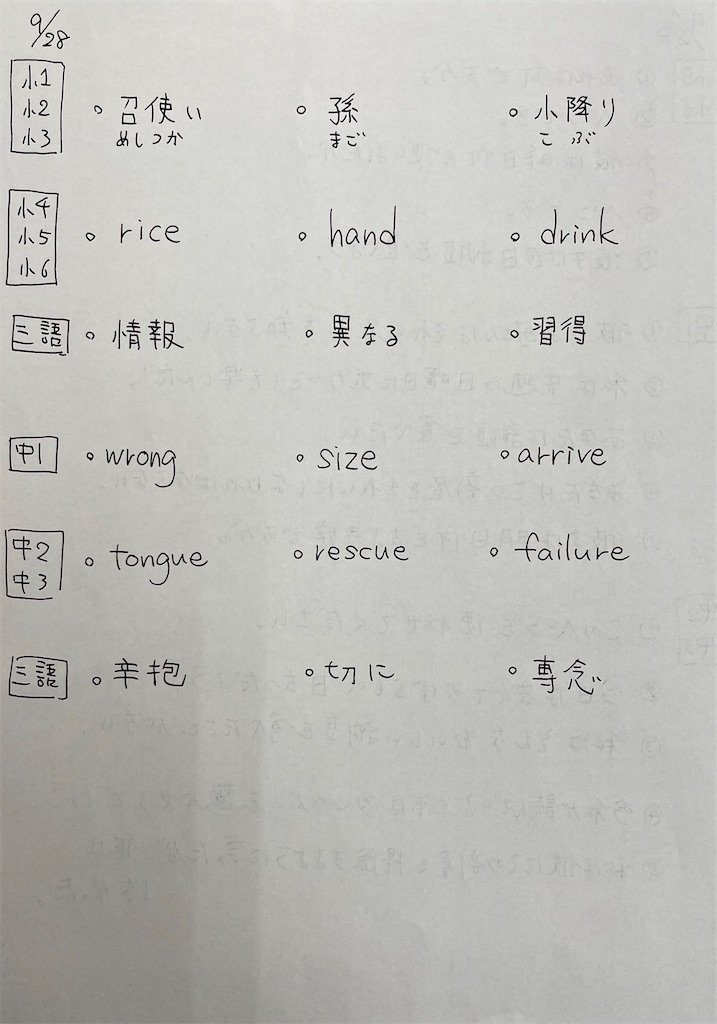 9/28
小1
小2 ○ 召使い ○ 孫 ○ 小降り
小3 めしつか まご こ ぶ
小4
小5 ○ rice ○ hand ○ drink
小6
三語 ○ 情報 ○ 異なる ○ 習得
中1 ○ wrong ○ size ○ arrive
中2 ○ tongue ○ rescue ○ failure
中3
三語 ○ 辛抱 ○ 切に ○ 専念